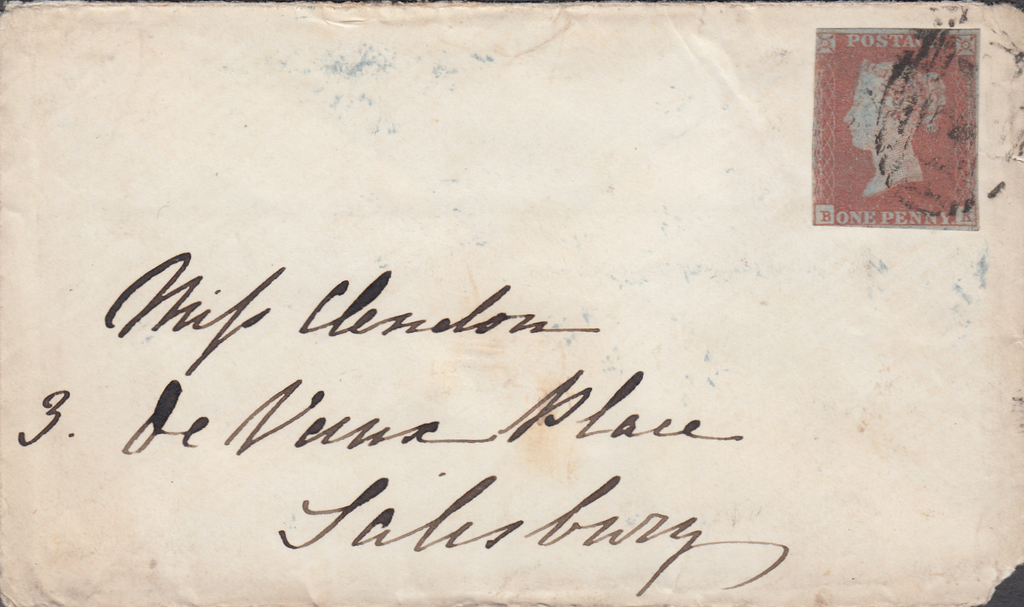 POSTAGE
B ONE PENNY K
Miss Clendon
3. De Vaux Place
Salisbury